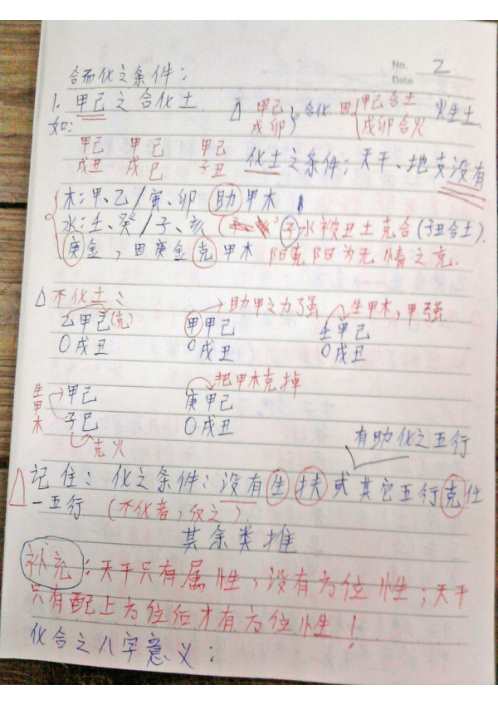 No. 2
Date
合而化之条件：
1. 甲己之合化土 △ 甲己 戊卯 合化 因 甲己合土 戊卯合火 火生土
如：
甲己 甲己 甲己
戌丑 戌巳 子丑 化土之条件；天干、地支没有
木：甲、乙/寅、卯 助甲木
水：壬、癸/子、亥 (子水被丑土克合(子丑合土).
庚金，因庚金克甲木 阳克阳为无情之克.
△ 不化土：
乙甲己(克) 甲甲己 →助甲之力强 壬甲己 生甲木，甲强
○戌丑 ○戌丑 ○戌丑
生甲木 甲己 庚甲己 把甲木克掉
子巳 ○戌丑
克火
有助化之五行
△ 记住：化之条件：没有生扶或其它五行克任
一五行 (不化者，反之)
其余类推
补充：天干只有属性，没有方位性；天干
只有配上方位后才有方位性！
化合之八字意义：